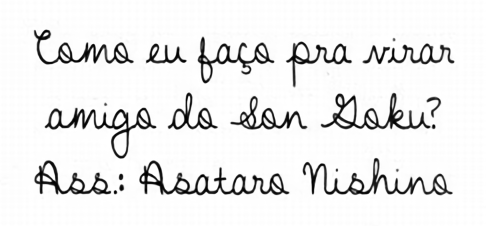 Como eu faço pra virar
amigo do Son Goku?
Ass.: Asataro Nishino